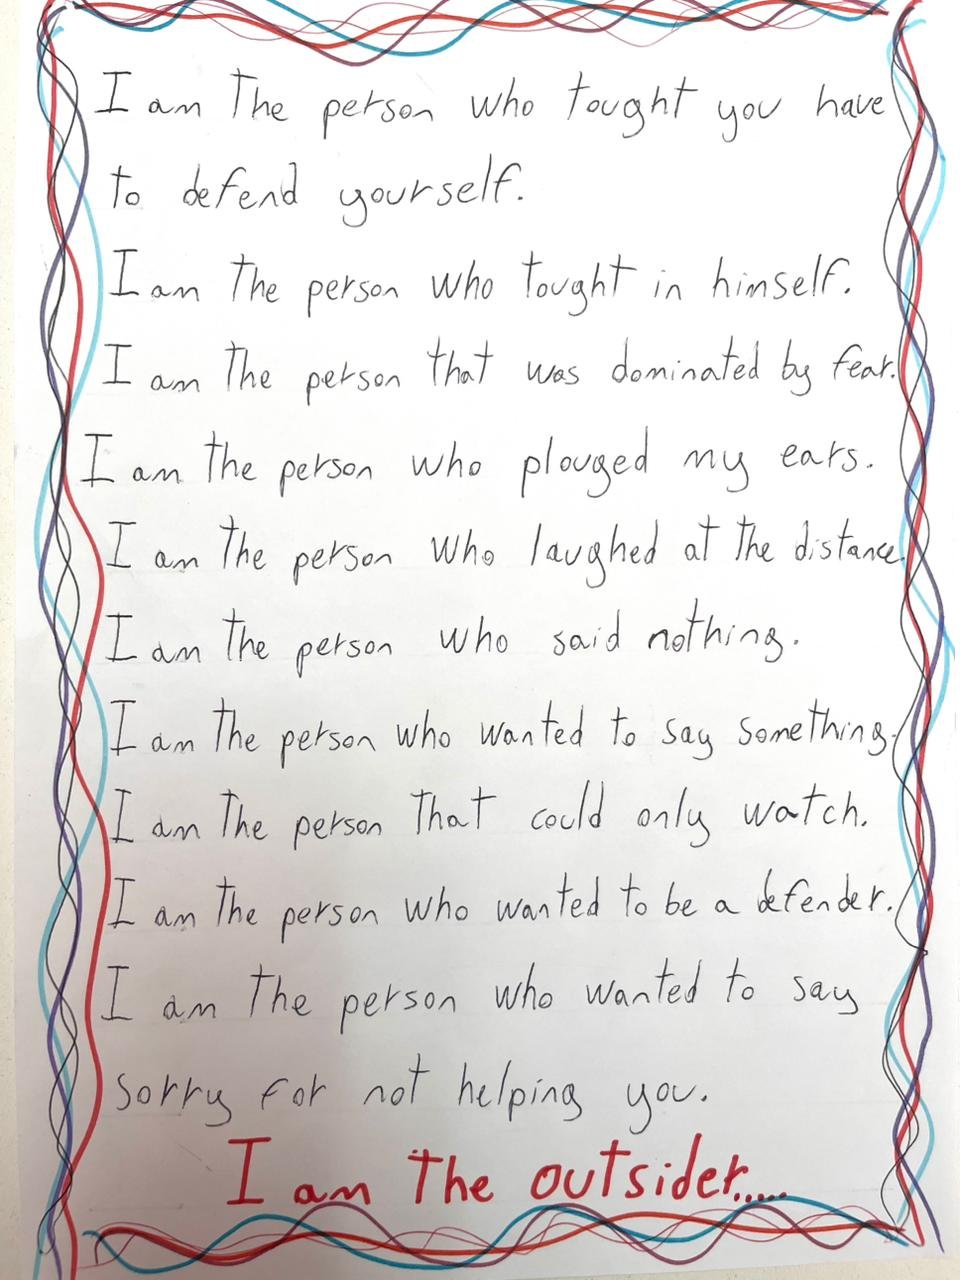 I am the person who tought you have
to defend yourself.
I am the person who tought in himself.
I am the person that was dominated by fear.
I am the person who plouged my ears.
I am the person who laughed at the distance.
I am the person who said nothing.
I am the person who wanted to say something.
I am the person that could only watch.
I am the person who wanted to be a defender.
I am the person who wanted to say
sorry for not helping you.
I am the outsider.....